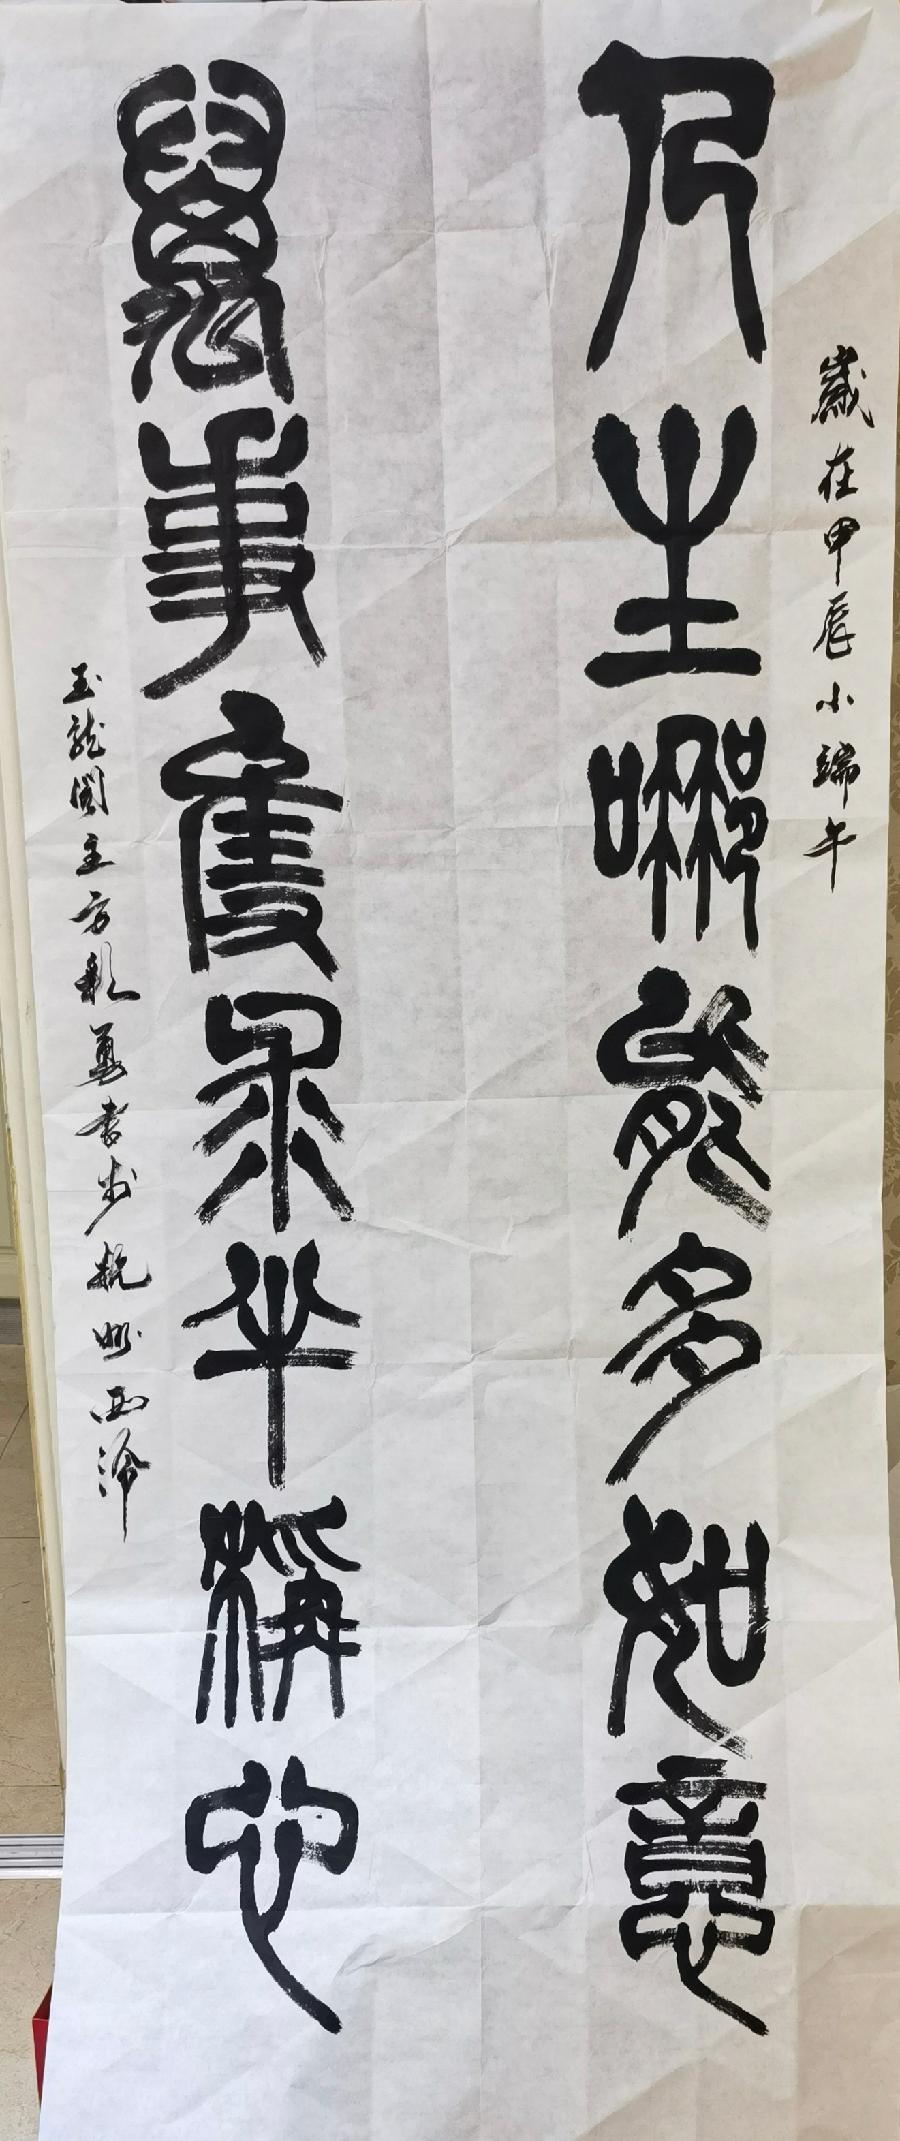 歲在甲辰小端午
人生哪能多如意
萬事隻求半稱心
玉龍閣主方彩勇書於杭州西泠